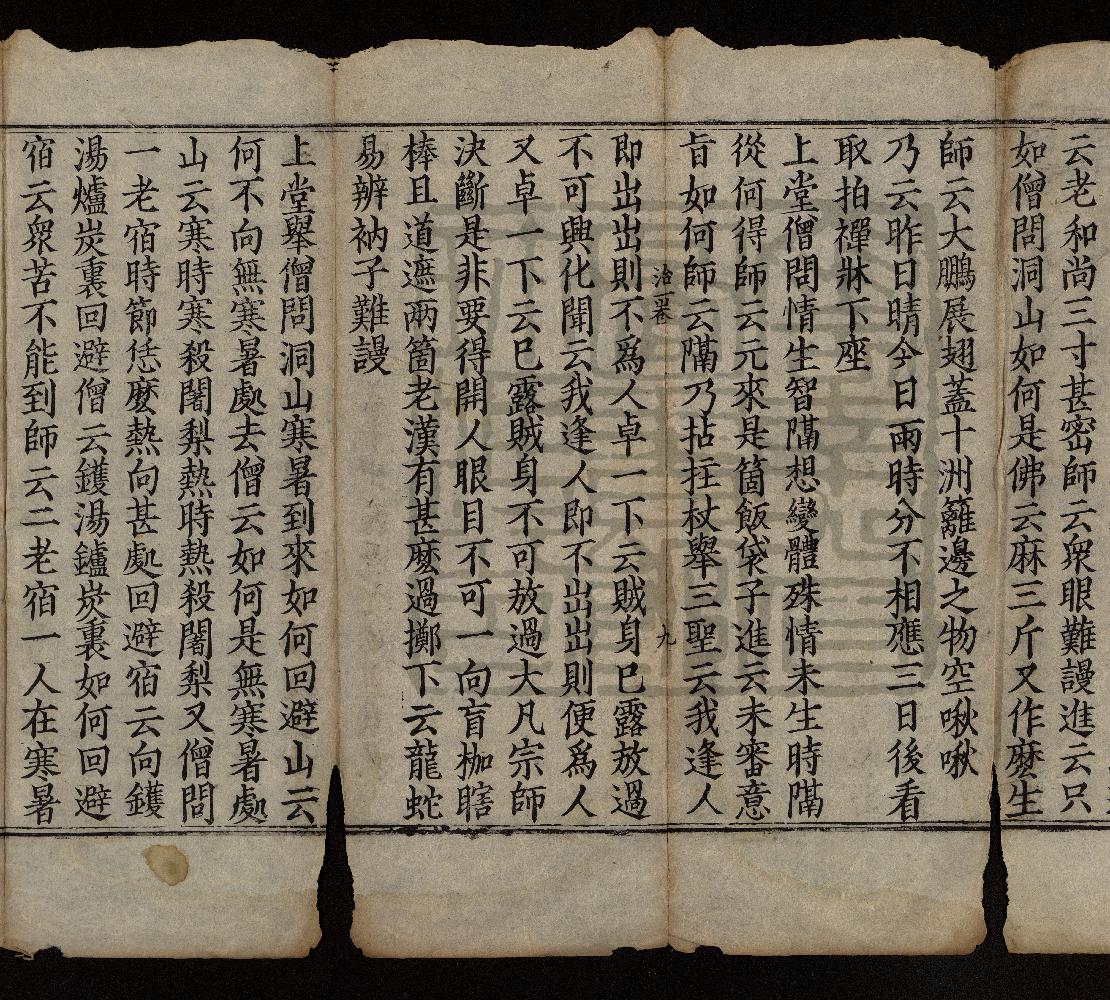 云老和尚三寸甚密師云衆眼難謾進云只
如僧問洞山如何是佛云麻三斤又作麽生
師云大鵬展翅蓋十洲籬邊之物空啾啾
乃云昨日晴今日雨時分不相應三日後看
取拍禪牀下座
上堂僧問情生智隔想變體殊情未生時隔
從何得師云元來是箇飯袋子進云未審意
旨如何師云隔乃拈拄杖舉三聖云我逢人
洽一卷 九
即出出則不爲人卓一下云賊身已露放過
不可興化聞云我逢人即不出出則便爲人
又卓一下云已露賊身不可放過大凡宗師
決斷是非要得開人眼目不可一向盲枷瞎
棒且道遮兩箇老漢有甚麽過擲下云龍蛇
易辨衲子難謾
上堂舉僧問洞山寒暑到來如何回避山云
何不向無寒暑處去僧云如何是無寒暑處
山云寒時寒殺闍梨熱時熱殺闍梨又僧問
一老宿時節恁麽熱向甚處回避宿云向鑊
湯爐炭裏回避僧云鑊湯鑪炭裏如何回避
宿云衆苦不能到師云二老宿一人在寒暑